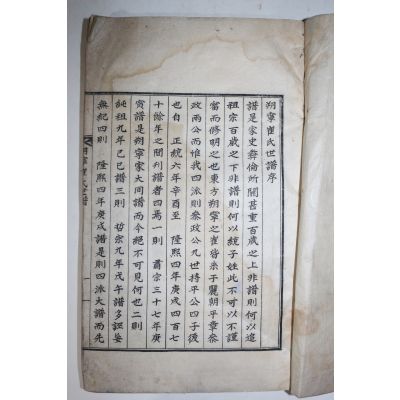 朔寧崔氏世譜序
譜是家史彛倫所關甚重百歲之上非譜則何以追
祖宗百歲之下非譜則何以統子姓此不可以不謹
富而修明之也東方朔寧之崔皆系于麗朝平章叅
政兩公而惟我四派則叅政公九世持平公四子後
也自 正統六年辛酉至 隆熙四年庚戌四百七
十餘年之間刋譜者四焉一則 肅宗三十七年庚
寅譜是朔寧家大同譜而今絕不可見何也二則
純祖九年己巳譜三則 哲宗九年戊午譜多誣妄
無紀四則 隆熙四年庚戌譜是則四派大譜而先
朔寧崔氏世譜